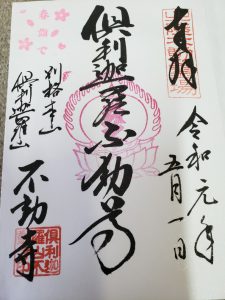 奉拝
令和元年
五月一日
倶利迦羅不動尊
別格本山
倶利迦羅山
不動寺